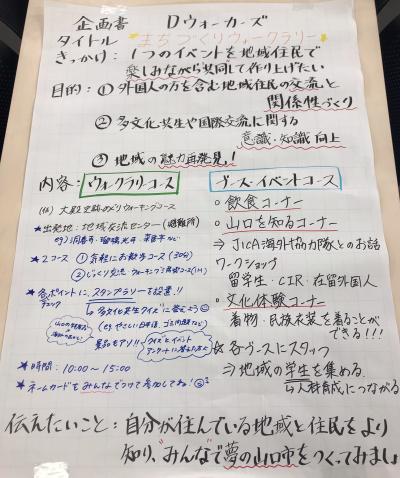 企画書 Dウォーカーズ
タイトル "まちづくりウォークラリー"
きっかけ：1つのイベントを地域住民で
楽しみながら共同して作り上げたい
目的：① 外国人の方を含む地域住民の交流と
関係性づくり
② 多文化共生や国際交流に関する
意識・知識 向上
③ 地域の魅力再発見！
内容：ウォークラリーコース
(仮) 大殿史跡めぐりウォーキングコース
★出発地：地域交流センター(避難所)
★2コース ①気軽にお散歩コース(30分)
②じっくり交流
★各ポイントにスタンプラリーを設置!!
チェック
→多文化共生クイズに答えよう
(ex) やさしい日本語、ゴミの出し方など
景品もアリ!!
クイズとイベント
アンケートに答えたら
★時間：10:00～15:00
★ネームカードをみんなでつけて参加してね!
ブース・イベントコース
・飲食コーナー
・山口を知るコーナー
⇒JICA海外協力隊とのお話
ワークショップ
留学生・CIR・在留外国人
・文化体験コーナー
着物・民族衣装を着ることが
できる!!!
☆各ブースにスタッフ
⇒地域の学生を集める
↳人材育成につながる
伝えたいこと：自分が住んでいる地域と住民をより
知り、"みんな"で夢の山口市をつくってみましょ